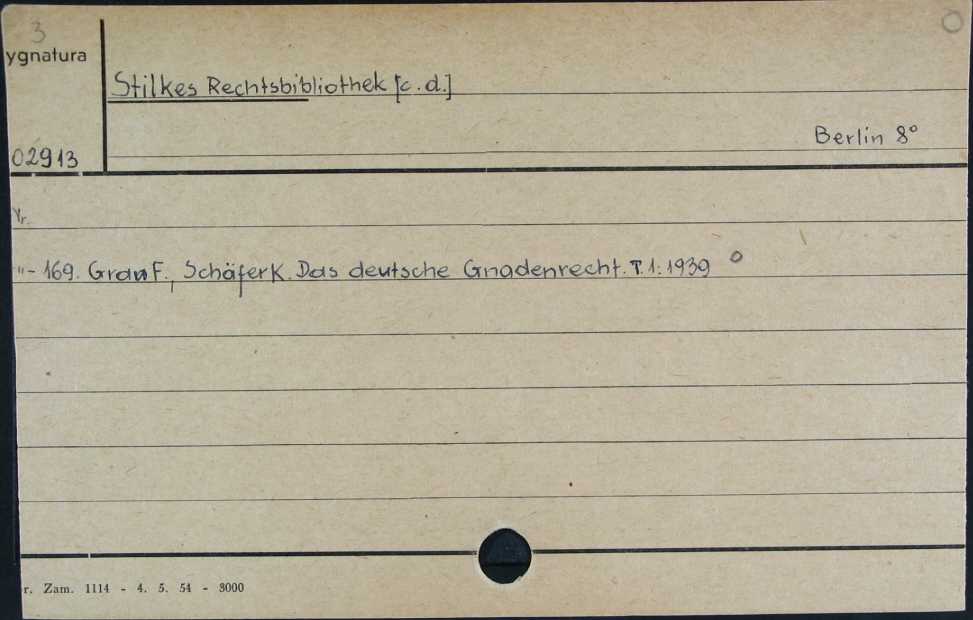 3
ygnatura
Stilkes Rechtsbibliothek [c.d.]
Berlin 8°
02913
Nr.
"- 169. Grau F., Schäfer K. Das deutsche Gnadenrecht. T.1: 1939
r. Zam. 1114 - 4. 5. 54 - 8000